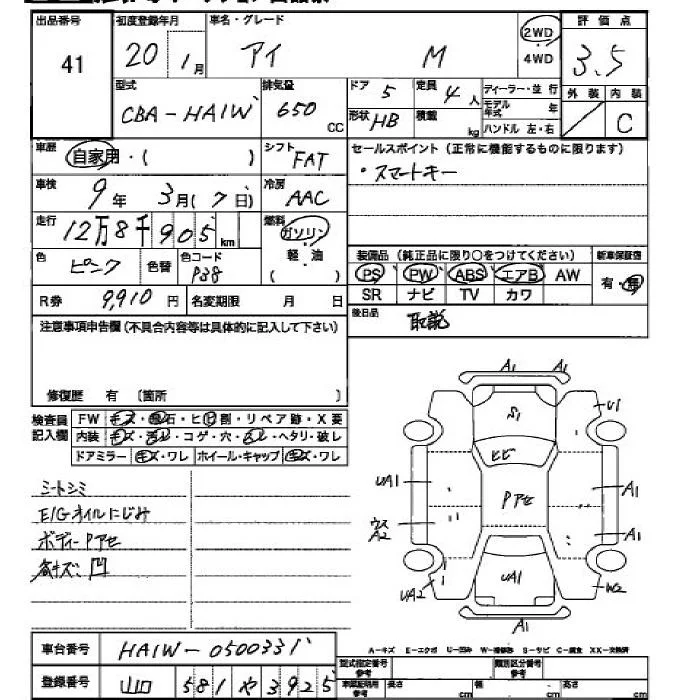 出品番号 41
初度登録年月 20 1月
車名・グレード アイ M
2WD 4WD
評価点 3.5
外装 内装 C
型式 CBA-HA1W
排気量 650 CC
ドア 5
定員 4人
形状 HB
積載 kg
ディーラー・並行
モデル年式 年
ハンドル 左・右
車歴 自家用・( )
シフト FAT
セールスポイント (正常に機能するものに限ります)
・スマートキー
車検 9年 3月(7日)
冷房 AAC
走行 12万8千905km
燃料 ガソリン 軽油 ( )
色 ピンク 色替 色コード P38
装備品 (純正品に限り○をつけてください)
新車保証書 有・無
PS PW ABS エアB AW
SR ナビ TV カワ
R券 9,910円
名変期限 月 日
後日品 取説
注意事項申告欄(不具合内容等は具体的に記入して下さい)
修復歴 有 〔箇所 〕
検査員記入欄
FW キズ・飛石・ヒビ割・リペア跡・X要
内装 キズ・汚レ・コゲ・穴・ヘタリ・破レ
ドアミラー キズ・ワレ ホイール・キャップ キズ・ワレ
シートシミ
E/Gオイルにじみ
ボディーPアセ
凹
A1 A1
S1
U1
ヒビ
UA1
Pアセ
A1
ウス A2
A1
UA1
UA2
W2
A1
A-キズ E-エクボ U-凹み W-補修跡 S-サビ C-腐食 XX-交換済
車台番号 HA1W-0500331
登録番号 山口 581 や 3925
型式指定番号 参考
類別区分番号 参考
長さ cm 幅 cm 高さ cm